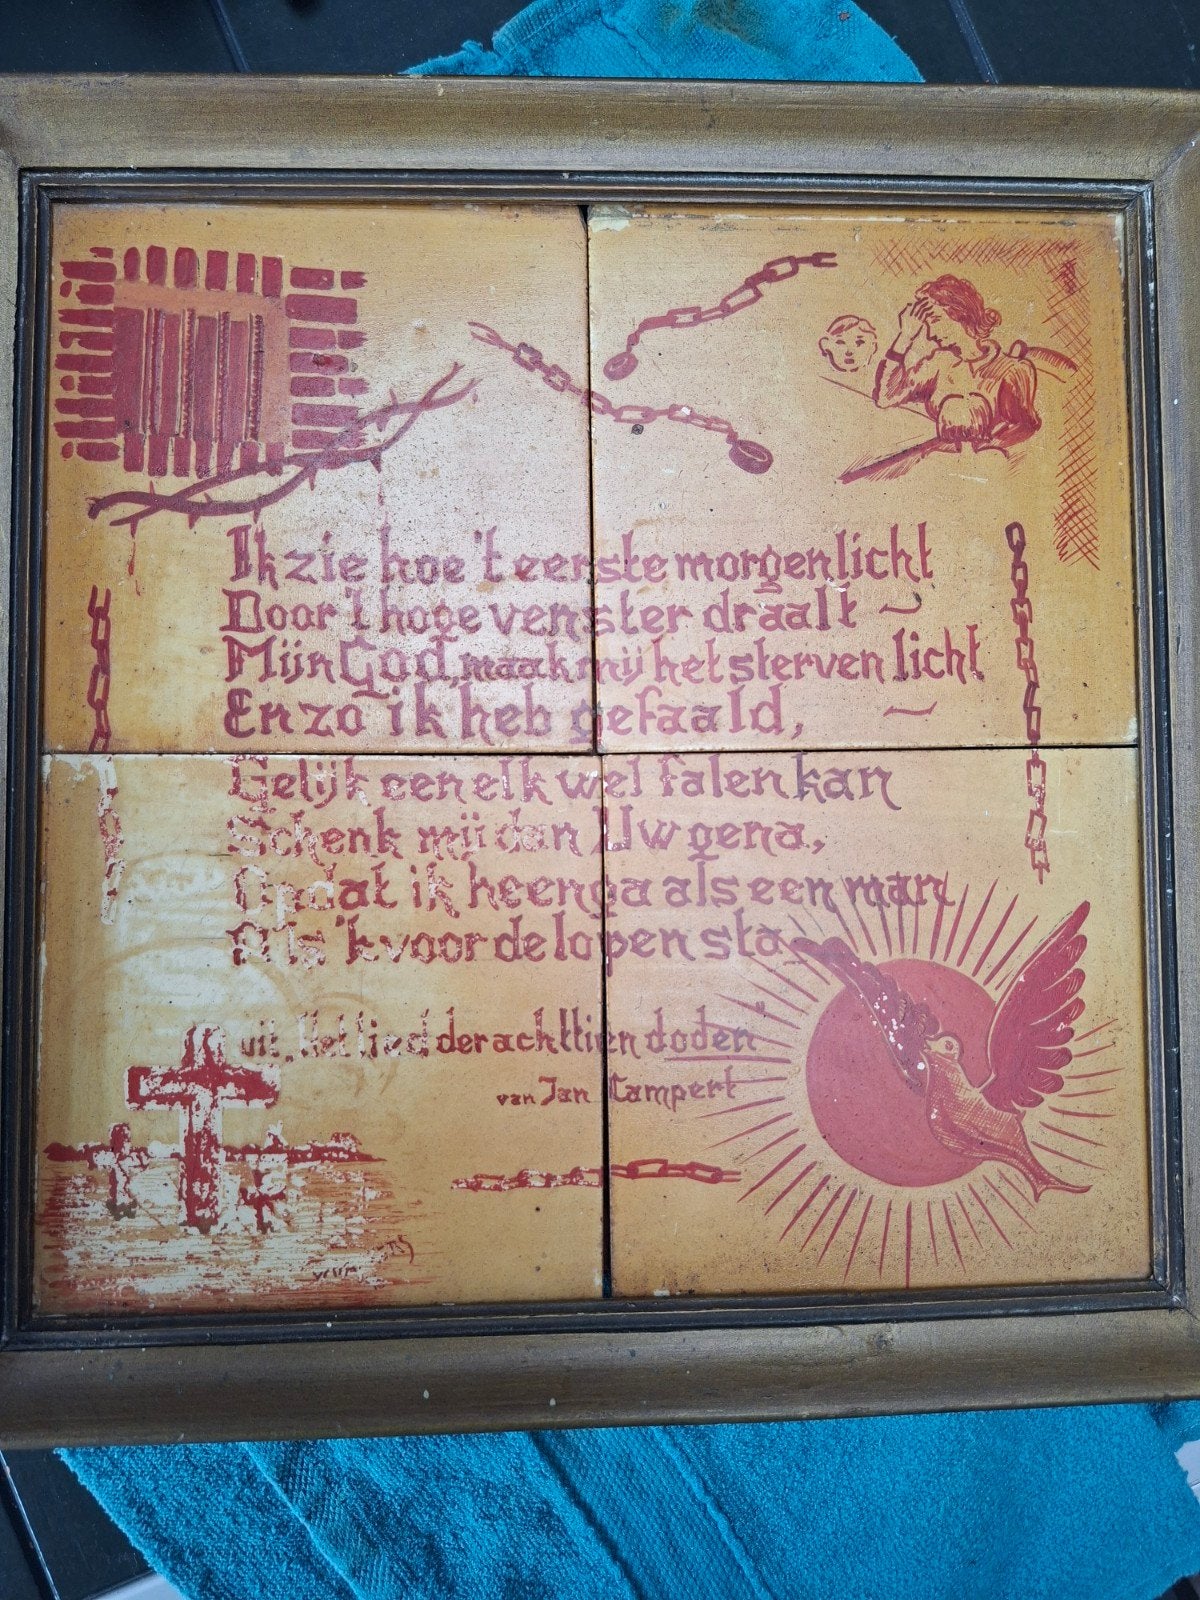 Ik zie hoe 't eerste morgenlicht
Door 't hoge venster draalt ~
Mijn God, maak mij het sterven licht
En zo ik heb gefaald, ~
Gelijk een elk wel falen kan
Schenk mij dan Uw gena,
Opdat ik heenga als een man
Als 'k voor de lopen sta,
uit „Het lied der achttien doden"
van Jan Campert